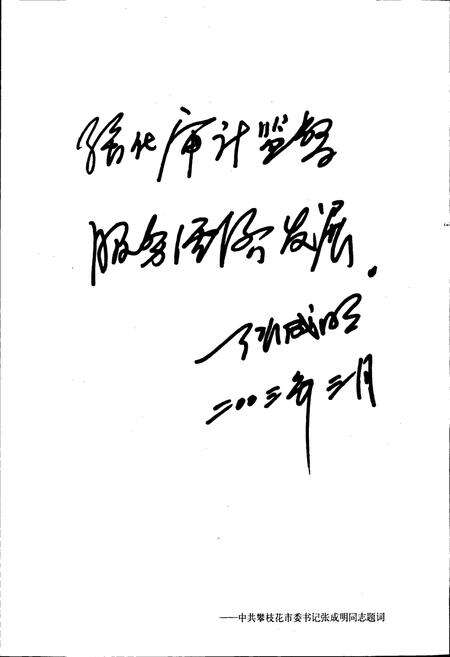 强化审计监督
服务经济发展.
张成明
二〇〇三年三月
——中共攀枝花市委书记张成明同志题词